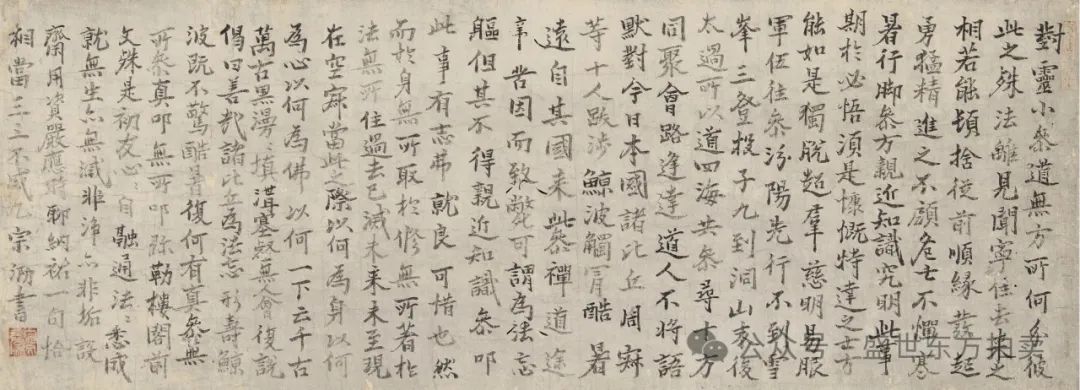 對靈小參道無方所何分彼
此之殊法離見聞寧住去来之
相若能頓捨從前順緣發起
勇猛精進之不顧危亡不憚寒
暑行脚參方親近知識究明此事
期於必悟須是慷慨特達之士方
能如是獨脫超羣慈明易服
軍伍往參汾陽先行不到雪
峯三登投子九到洞山末後
太過所以道四海共參尋十方
同聚會路逢達道人不將語
默對今日本國諸比丘周寂
等十人跋涉鯨波觸冒酷暑
遠自其國来此參禪道途
辛苦因而致斃可謂為法忘
軀但其不得親近知識參叩
此事有志弗就良可惜也然
而於身無所取於修無所著於
法無所住過去已滅未来未至現
在空寂當此之際以何為身以何
為心以何為佛以何一下云千古
萬古黑漫〻填溝塞壑無人會復說
偈曰善哉諸比丘為法忘形壽鯨
波既不驚酷暑復何有真參無
所參真叩無所叩弥勒樓閣前
文殊是初友心〻自融通法〻悉成
就無生亦無滅非淨亦非垢設
齋用資嚴應時聊納祐一句恰
相當三三不成九 宗泐書
公众号·盛世东方拍卖